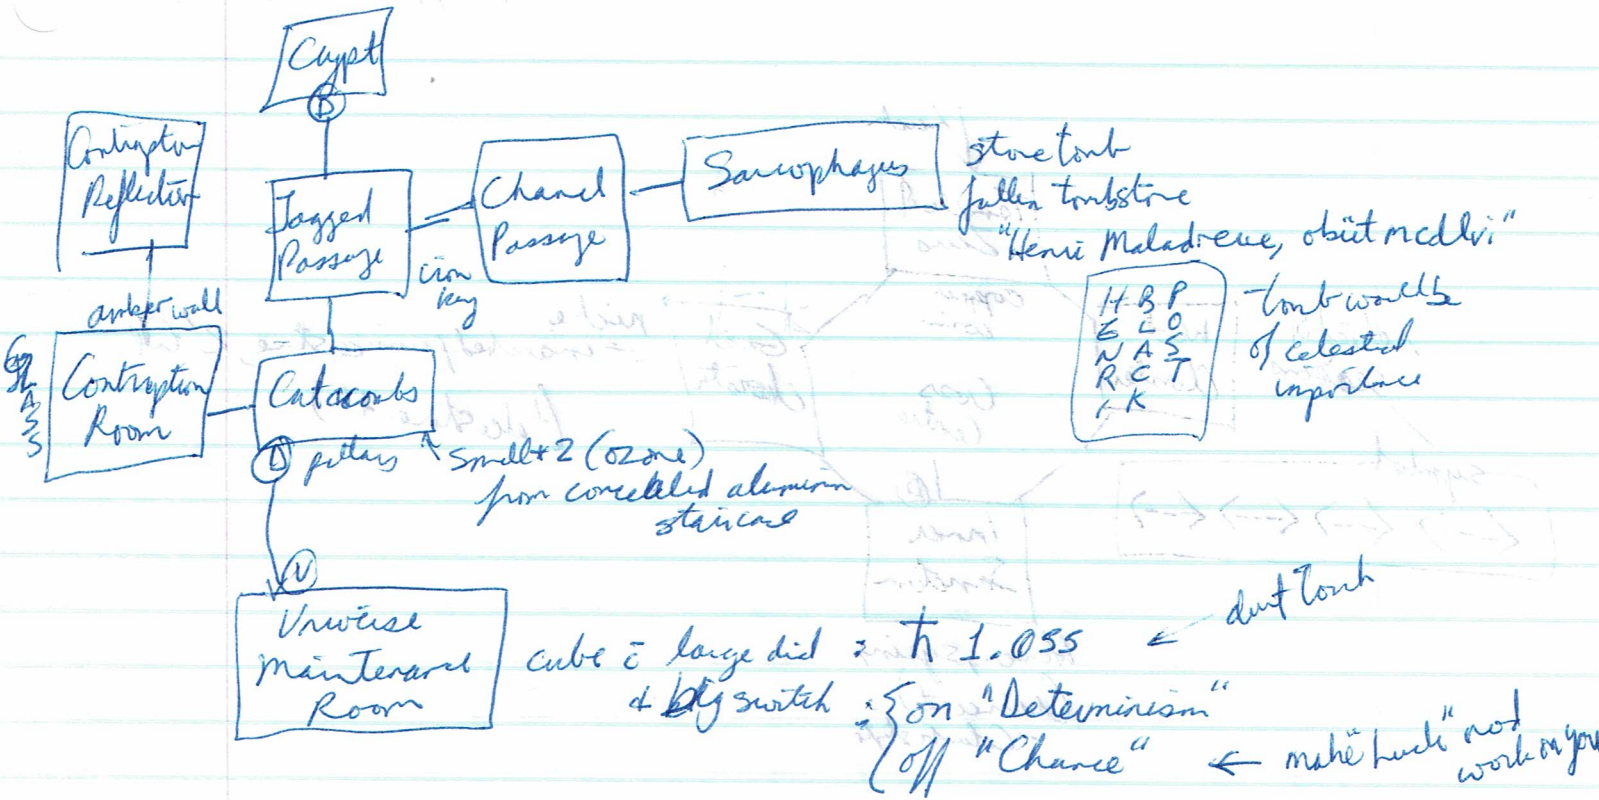 Crypt
D
Contraption
Reflection
Jagged
Passage
Charnel
Passage
Sarcophagus
stone tomb
fallen tombstone
"Henri Maladreue, obiit mcdlvi"
iron
key
amber wall
H B P
E L O
N A S
R C T
I K
- tomb would be
of celestial
importance
GLASS
Contraption
Room
Catacombs
D pillars
smell + 2 (ozone)
from concealed aluminum
staircase
U
Universe
Maintenance
Room
cube c̄ large dial : ħ 1.055 ← don't touch
+ big switch : { on "Determinism"
off "Chance" ← make "luck" not
work on you